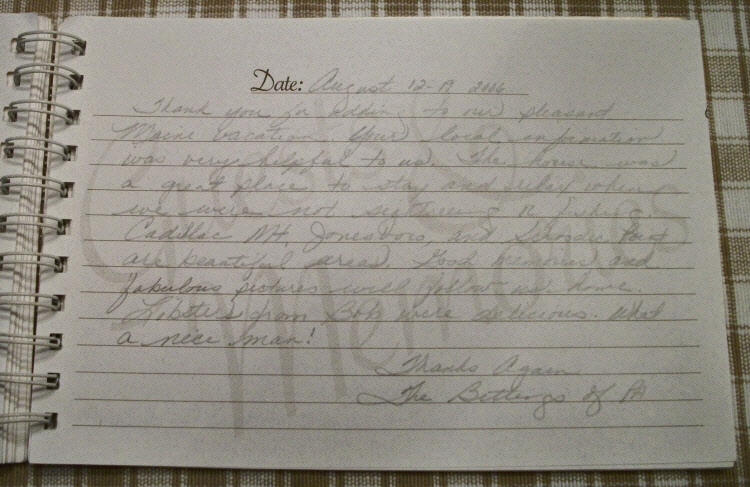 Date: August 12-19 2006
Thank you for adding to our pleasant
Maine vacation. Your local information
was very helpful to us. The house was
a great place to stay and relax when
we were not sightseeing or fishing.
Cadillac Mt, Jonesboro, and Schoodic Point
are beautiful areas. Good memories and
fabulous pictures will follow us home.
Lobsters from Bob were delicious. What
a nice man!
Thanks Again
The Bittings of PA
Guests
Memories